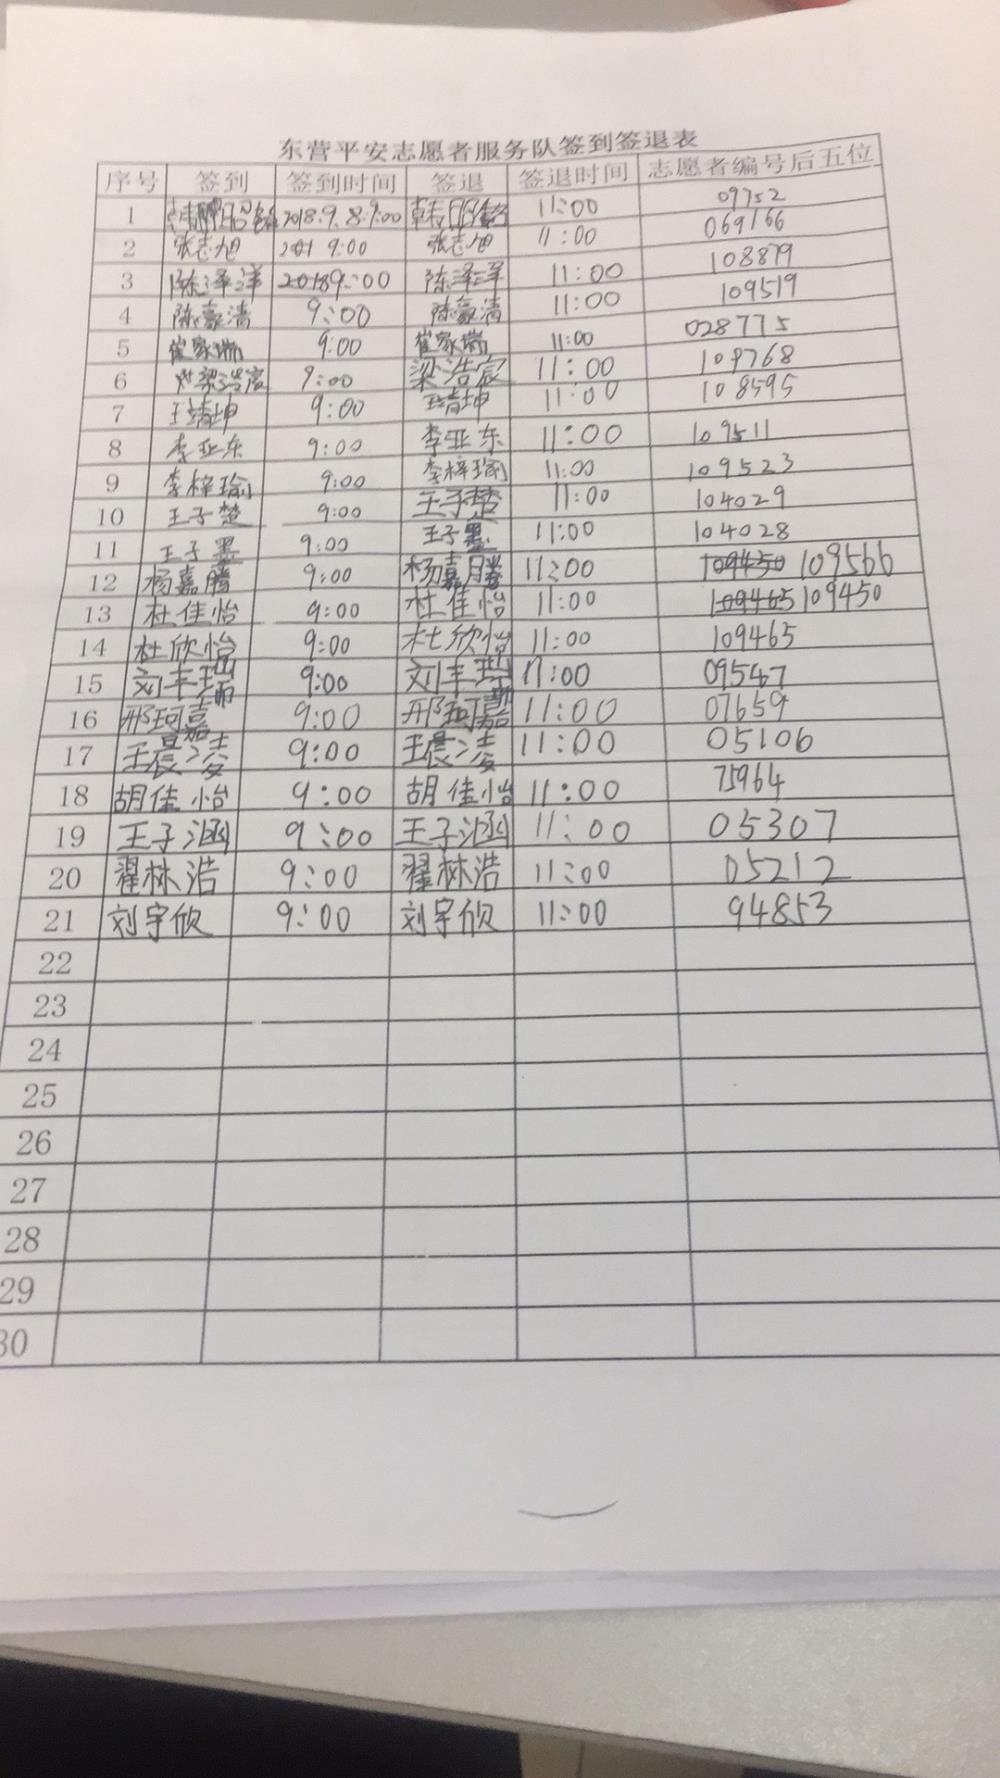 东营平安志愿者服务队签到签退表
序号 签到 签到时间 签退 签退时间 志愿者编号后五位
1 2018.9.8.9:00 韩昭铭 11:00 09752
2 张志旭 201 9:00 张志旭 11:00 069166
3 陈泽洋 20189:00 陈泽洋 11:00 108879
4 陈豪清 9:00 陈豪清 11:00 109519
5 崔家瑞 9:00 崔家瑞 11:00 028775
6 梁浩宸 9:00 梁浩宸 11:00 109768
7 王靖坤 9:00 王靖坤 11:00 108595
8 李亚东 9:00 李亚东 11:00 109511
9 李梓瑜 9:00 李梓瑜 11:00 109523
10 王子楚 9:00 王子楚 11:00 104029
11 王子墨 9:00 王子墨 11:00 104028
12 杨嘉腾 9:00 杨嘉腾 11:00 109450 109566
13 杜佳怡 9:00 杜佳怡 11:00 109465 109450
14 杜欣怡 9:00 杜欣怡 11:00 109465
15 刘丰瑞 9:00 刘丰瑞 11:00 09547
16 邢珂嘉 9:00 邢珂嘉 11:00 07659
17 王晨凌 9:00 王晨凌 11:00 05106
18 胡佳怡 9:00 胡佳怡 11:00 75964
19 王子涵 9:00 王子涵 11:00 05307
20 翟林浩 9:00 翟林浩 11:00 05212
21 刘宇欣 9:00 刘宇欣 11:00 94853
22
23
24
25
26
27
28
29
30